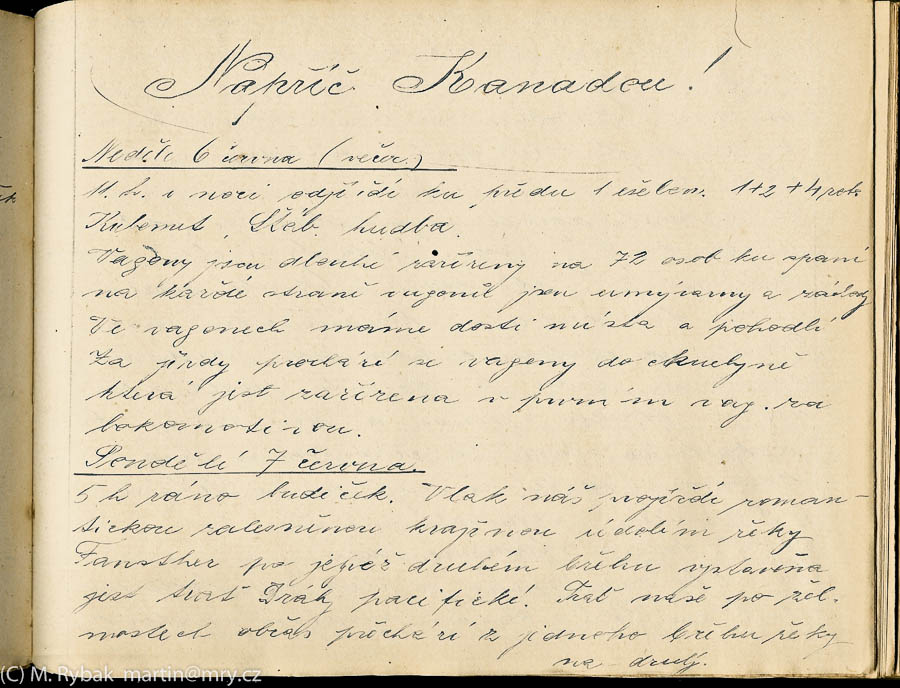 Napříč Kanadou!
Neděle 6 června (večer.)
11. h. v noci odjíždí ku předu 1 ešelon. 1+2+4 rota
Kulomet, Štáb hudba.
Vagony jsou dlouhé zařízeny na 72 osob ku spaní
na každé straně vagonů jsou umývarny a záchody
Ve vagonech máme dosti místa a pohodlí
Za jízdy prochází se vagony do kuchyně
která jest zařízena v prvním vag. za
lokomotivou.
Pondělí 7 června.
5 h ráno budíček. Vlak náš projíždí roman-
tickou zalesněnou krajinou údolím řeky
po jejíž druhém břehu vystavěna
jest trať Dráhy pacifické. Trať naše po žel.
mostech občas přechází z jednoho břehu řeky
na druhý.
(C) M. Rybak martin@mry.cz